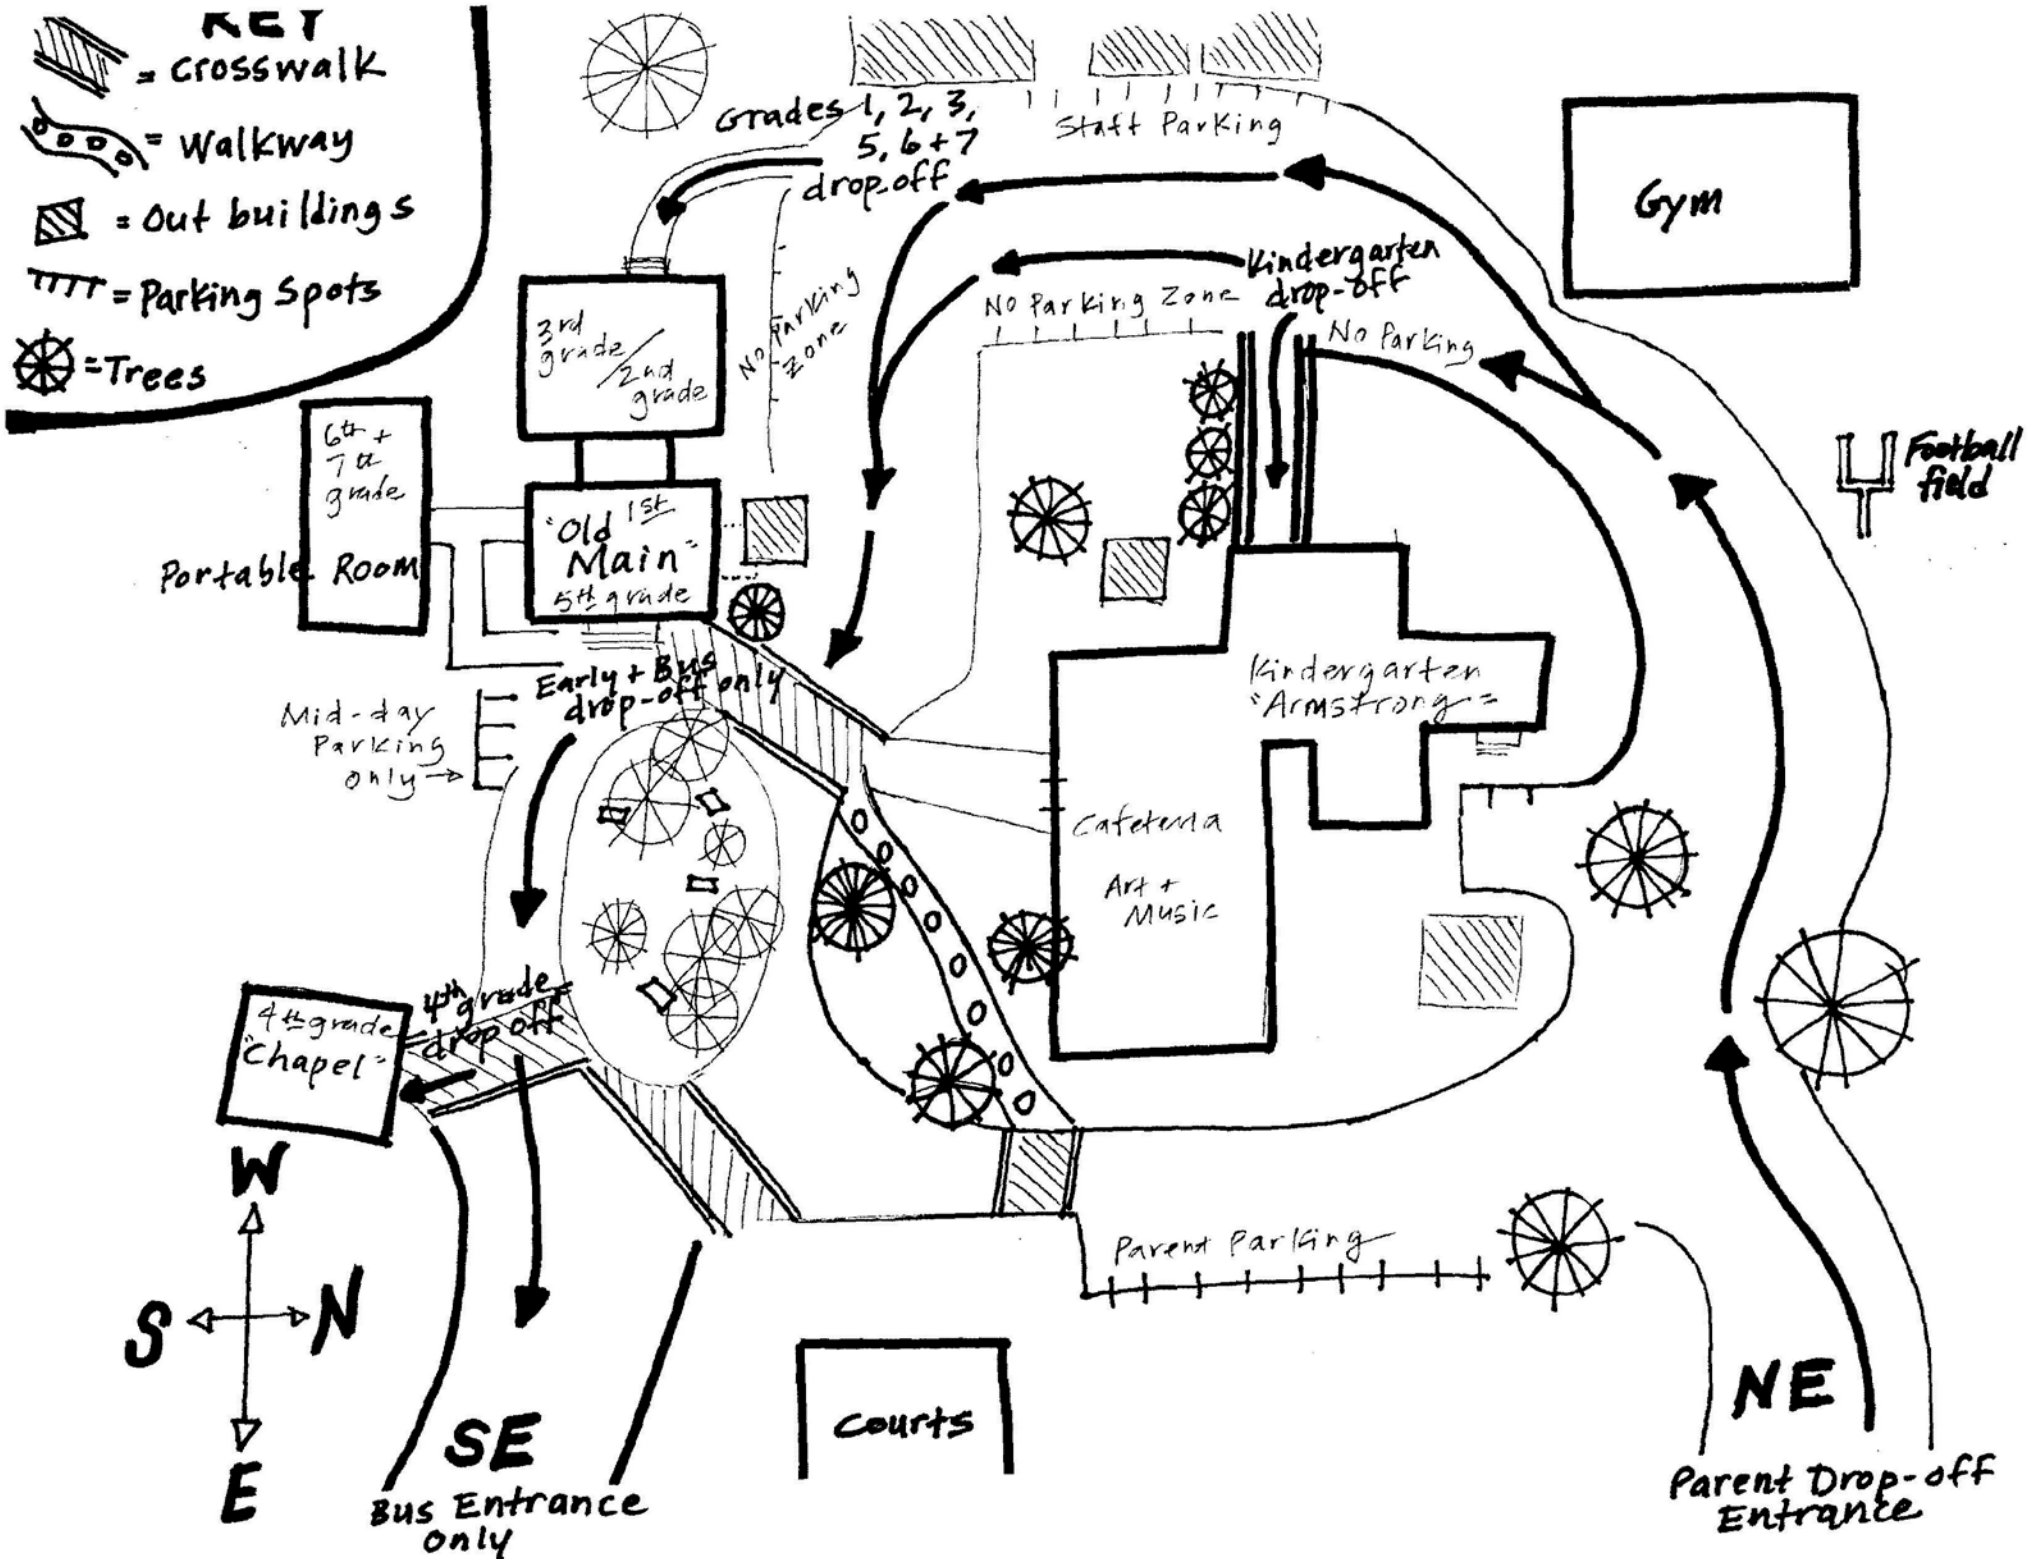 KEY
= crosswalk
= Walkway
= Out buildings
= Parking Spots
= Trees
Grades 1, 2, 3,
5, 6 + 7
drop-off
Staff Parking
Gym
Kindergarten
drop-off
No Parking Zone
No Parking
No Parking
Zone
3rd
grade /
2nd
grade
6th +
7th
grade
Portable Room
1st
"Old
Main"
5th grade
Football
field
Early + Bus
drop-off only
Mid-day
Parking
only →
Kindergarten
"Armstrong"
Cafeteria
Art +
Music
4th grade
drop off
4th grade
"Chapel"
W
S
N
E
Parent Parking
Courts
SE
Bus Entrance
only
NE
Parent Drop-off
Entrance